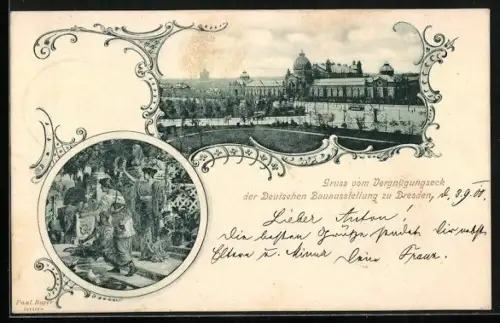 Gruss vom Vergnügungseck
der Deutschen Bauausstellung zu Dresden, d. 3.9.00.
Lieber Anton!
Die besten Grüße sendet Dir nebst
Eltern u. Minna Dein Franz.
Paul Bayer
Dresden